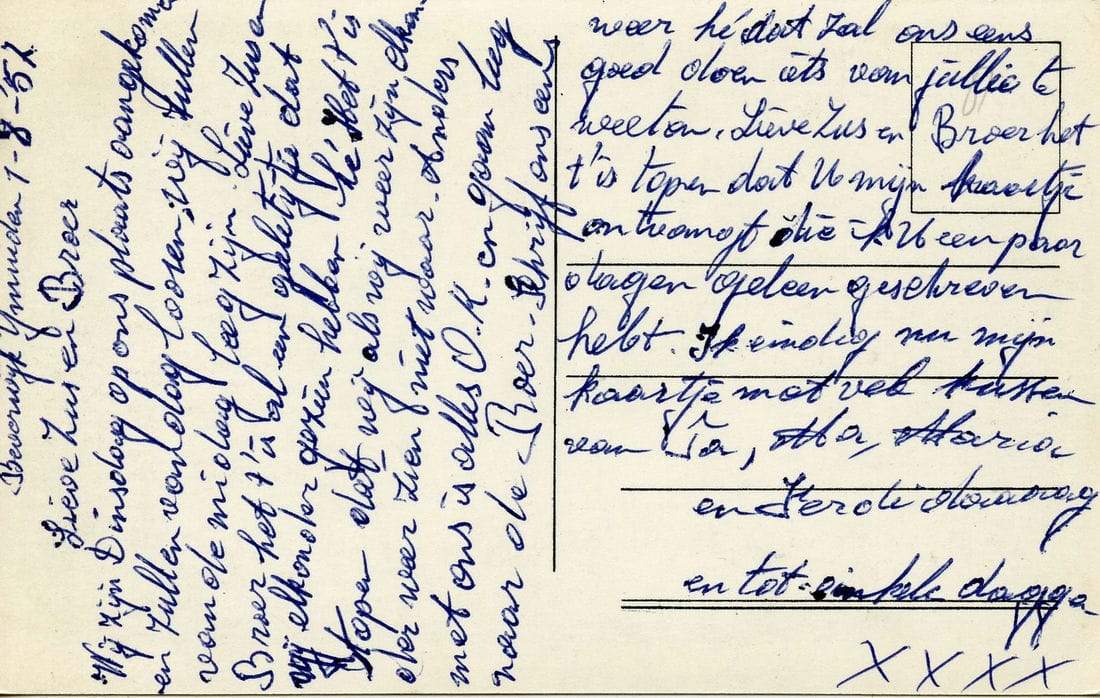 Beverwijk Ymuiden 1-8-'52
Lieve Zus en Broer
Wij zijn Dinsdag op ons plaats aangekome
en zullen vandaag loosen, wij zullen
van de midag leeg zijn. Lieve Zus en
Broer het t'is al een geheel tijtje dat
wij elkonder gezien hebben hé. Het t'is
topen dat wij als wij weer zijn elkan
der weer zien niet waar. Anders
met ons is alles O.K. en gaan leeg
naar de Boer. Schrijf ons een
weer hé dat zal ons eens
goed doen iets vam jullie te
weeton. Lieve Zus en Broer het
t'is topen dat U mijn kaartje
ontvangt die ik U een paar
dagen geleen geschreven
hebt. Ik eindig nu mijn
kaartje met vele kussen
van Pa, Ma, Maria
en Ferdi daaag
en tot
dagga
X X X X